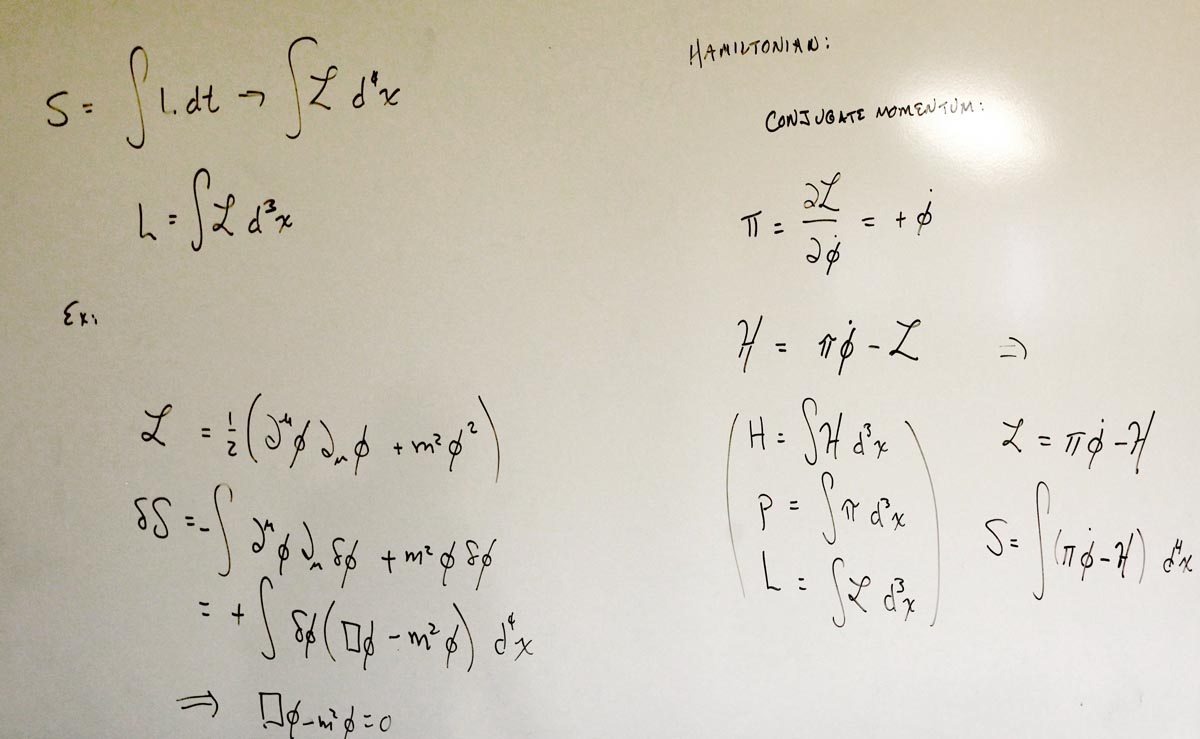 S = ∫ L dt → ∫ ℒ d⁴x
L = ∫ ℒ d³x
Ex:
ℒ = ½ (∂^μ ϕ ∂_μ ϕ + m² ϕ²)
δS = - ∫ ∂^μ ϕ ∂_μ δϕ + m² ϕ δϕ
= + ∫ δϕ (□ϕ - m² ϕ) d⁴x
⇒ □ϕ - m² ϕ = 0
HAMILTONIAN:
CONJUGATE MOMENTUM:
π = ∂ℒ/∂ϕ̇ = + ϕ̇
ℋ = π ϕ̇ - ℒ ⇒
( H = ∫ ℋ d³x
P = ∫ π d³x
L = ∫ ℒ d³x )
ℒ = π ϕ̇ - ℋ
S = ∫ (π ϕ̇ - ℋ) d⁴x